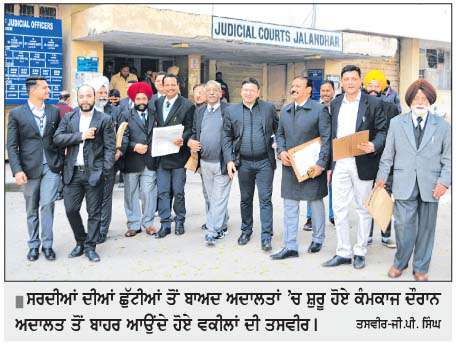 JUDICIAL OFFICERS
JUDICIAL COURTS JALANDHAR
ਸਰਦੀਆਂ ਦੀਆਂ ਛੁੱਟੀਆਂ ਤੋਂ ਬਾਅਦ ਅਦਾਲਤਾਂ ’ਚ ਸ਼ੁਰੂ ਹੋਏ ਕੰਮਕਾਜ ਦੌਰਾਨ
ਅਦਾਲਤ ਤੋਂ ਬਾਹਰ ਆਉਂਦੇ ਹੋਏ ਵਕੀਲਾਂ ਦੀ ਤਸਵੀਰ। ਤਸਵੀਰ-ਜੀ.ਪੀ. ਸਿੰਘ